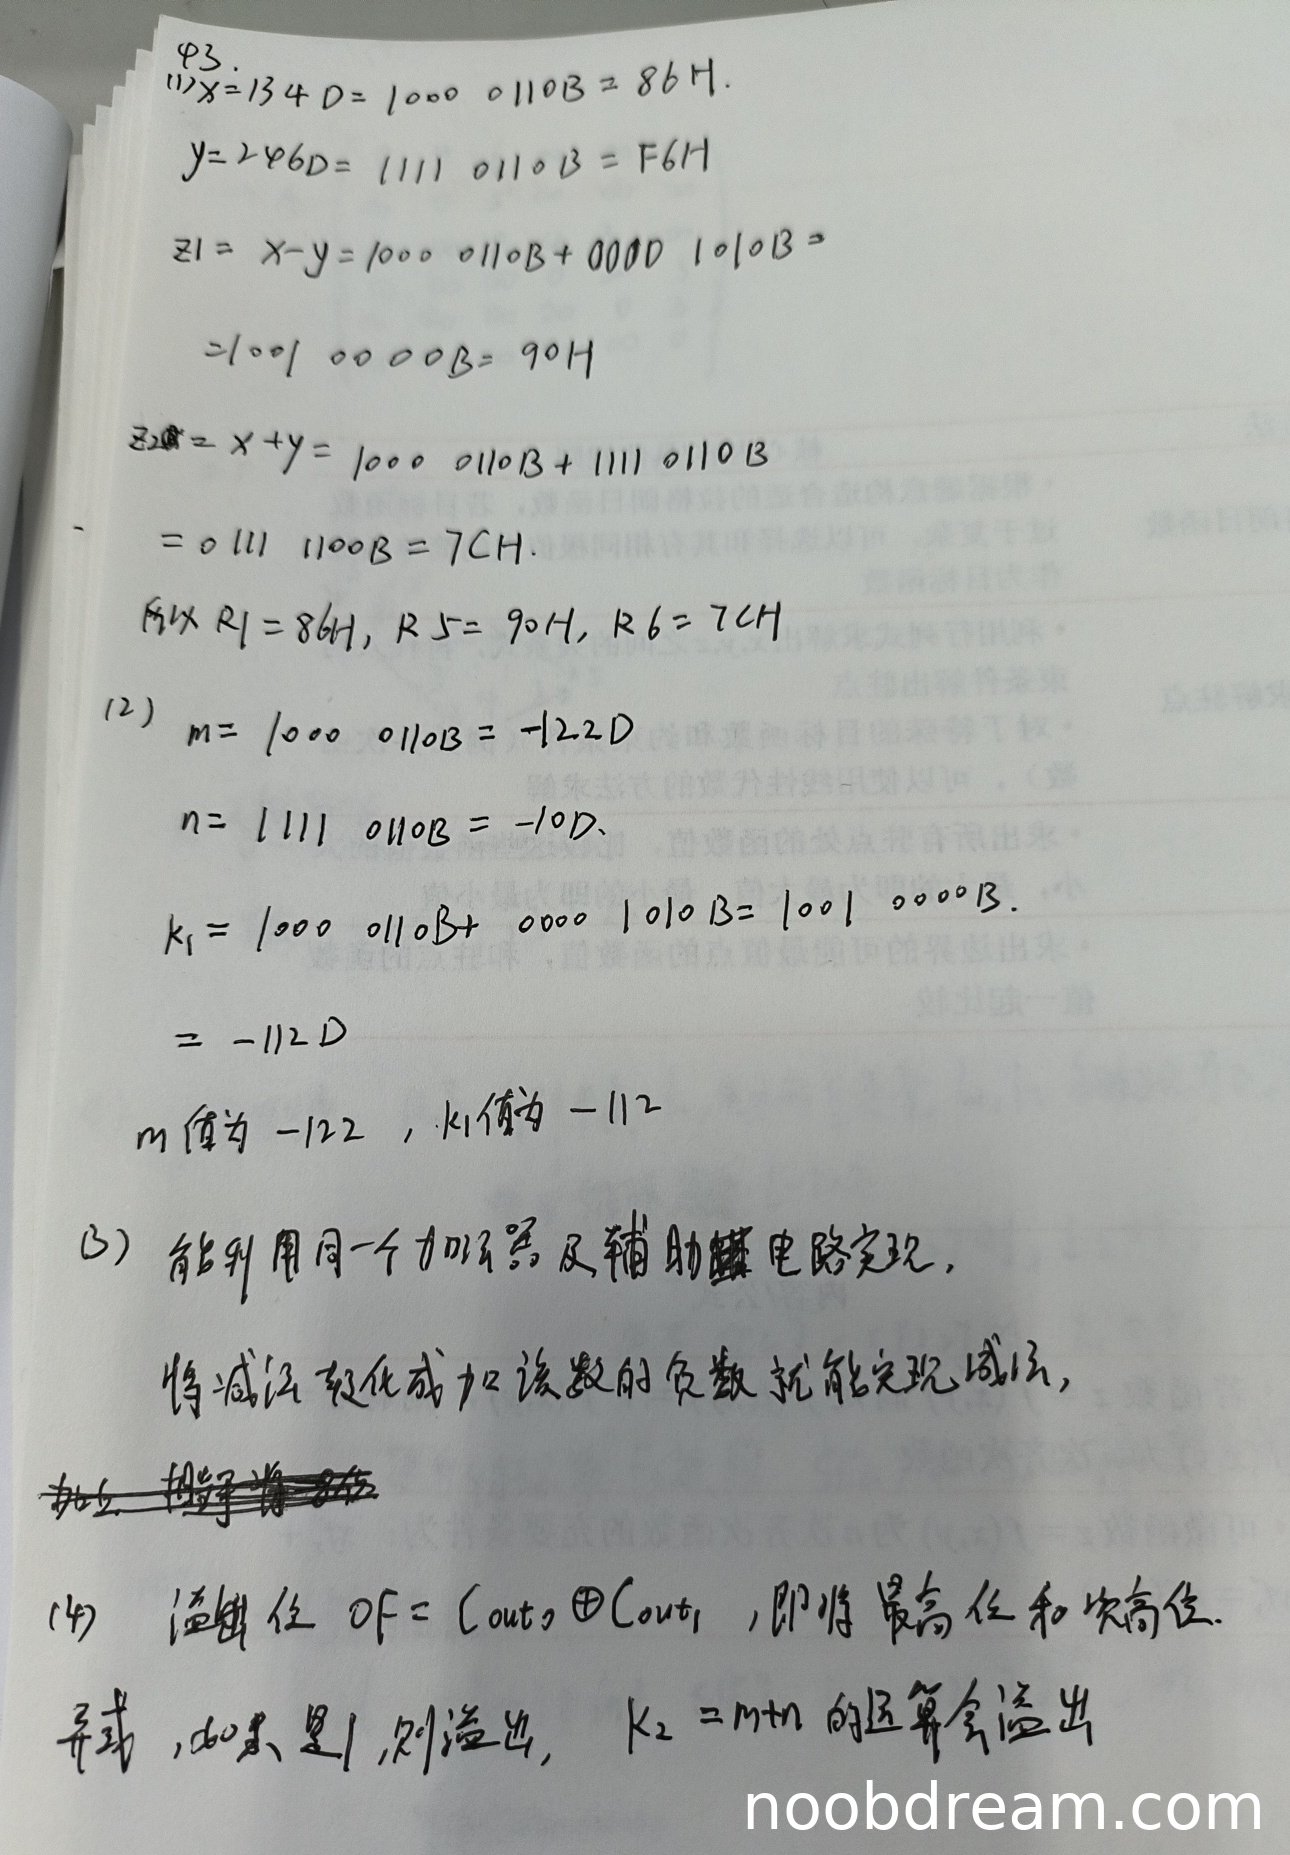 43.
(1) x=134D=1000 0110B=86H.
y=246D=1111 0110B=F6H
z1=x-y=1000 0110B+0000 1010B=
=1001 0000B=90H
z2=x+y=1000 0110B+1111 0110B
=0111 1100B=7CH.
所以R1=86H, R5=90H, R6=7CH
(2) m=1000 0110B=-122D
n=1111 0110B=-10D、
k₁=1000 0110B+0000 1010B=1001 0000B.
=-112D
m值为-122,k₁值为-112
(3) 能利用同一个加法器及辅助电路实现,
将减法转化成加该数的负数就能实现减法,
(4) 溢出位 OF=Cout₀⊕Cout₁,即将最高位和次高位.
异或,如果是1,则溢出, k₂=m+n的运算会溢出
noobdream.com